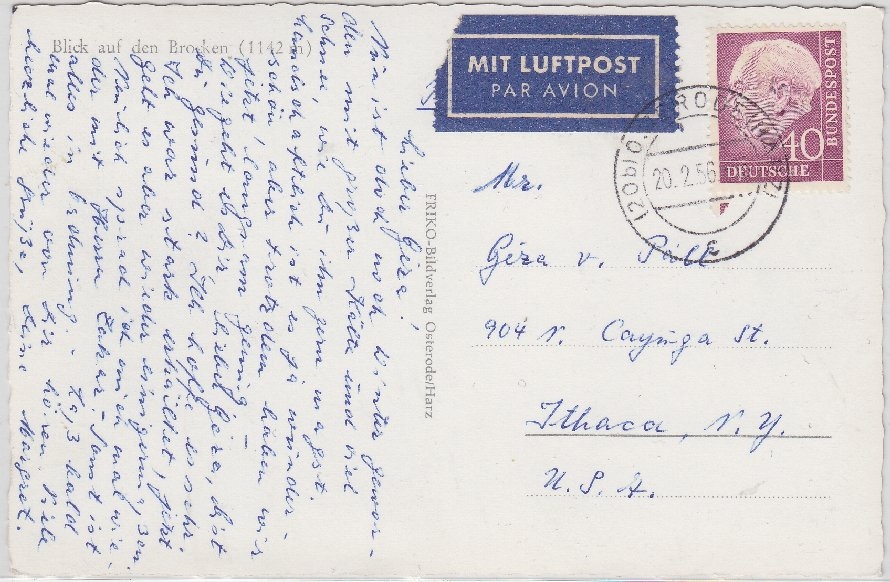 Blick auf den Brocken (1142 m)
Lieber Géza!
Nun ist doch noch Winter gewor-
den mit großer Kälte und viel
Schnee, wie Du ihn gern magst.
Landschaftlich ist es ja wunder-
schön, aber trotzdem haben wir
jetzt langsam genug. –
Wie geht es Dir, lieber Géza, bist
Du gesund? Ich hoffe es sehr.
Ich war stark erkältet, jetzt
geht es aber wieder einigermaßen.
Neulich sprach ich mich mal wie-
der mit Herrn – Sonst ist
alles in Ordnung. – Laß bald
mal wieder von Dir hören. Viele
herzliche Grüße, Deine Margret.
FRIKO-Bildverlag Osterode/Harz
MIT LUFTPOST
PAR AVION
40
DEUTSCHE
BUNDESPOST
(20b)
20.2.56
c
Mr.
Géza v. Páll
904 N. Cayuga St.
Ithaca, N. Y.
U. S. A.